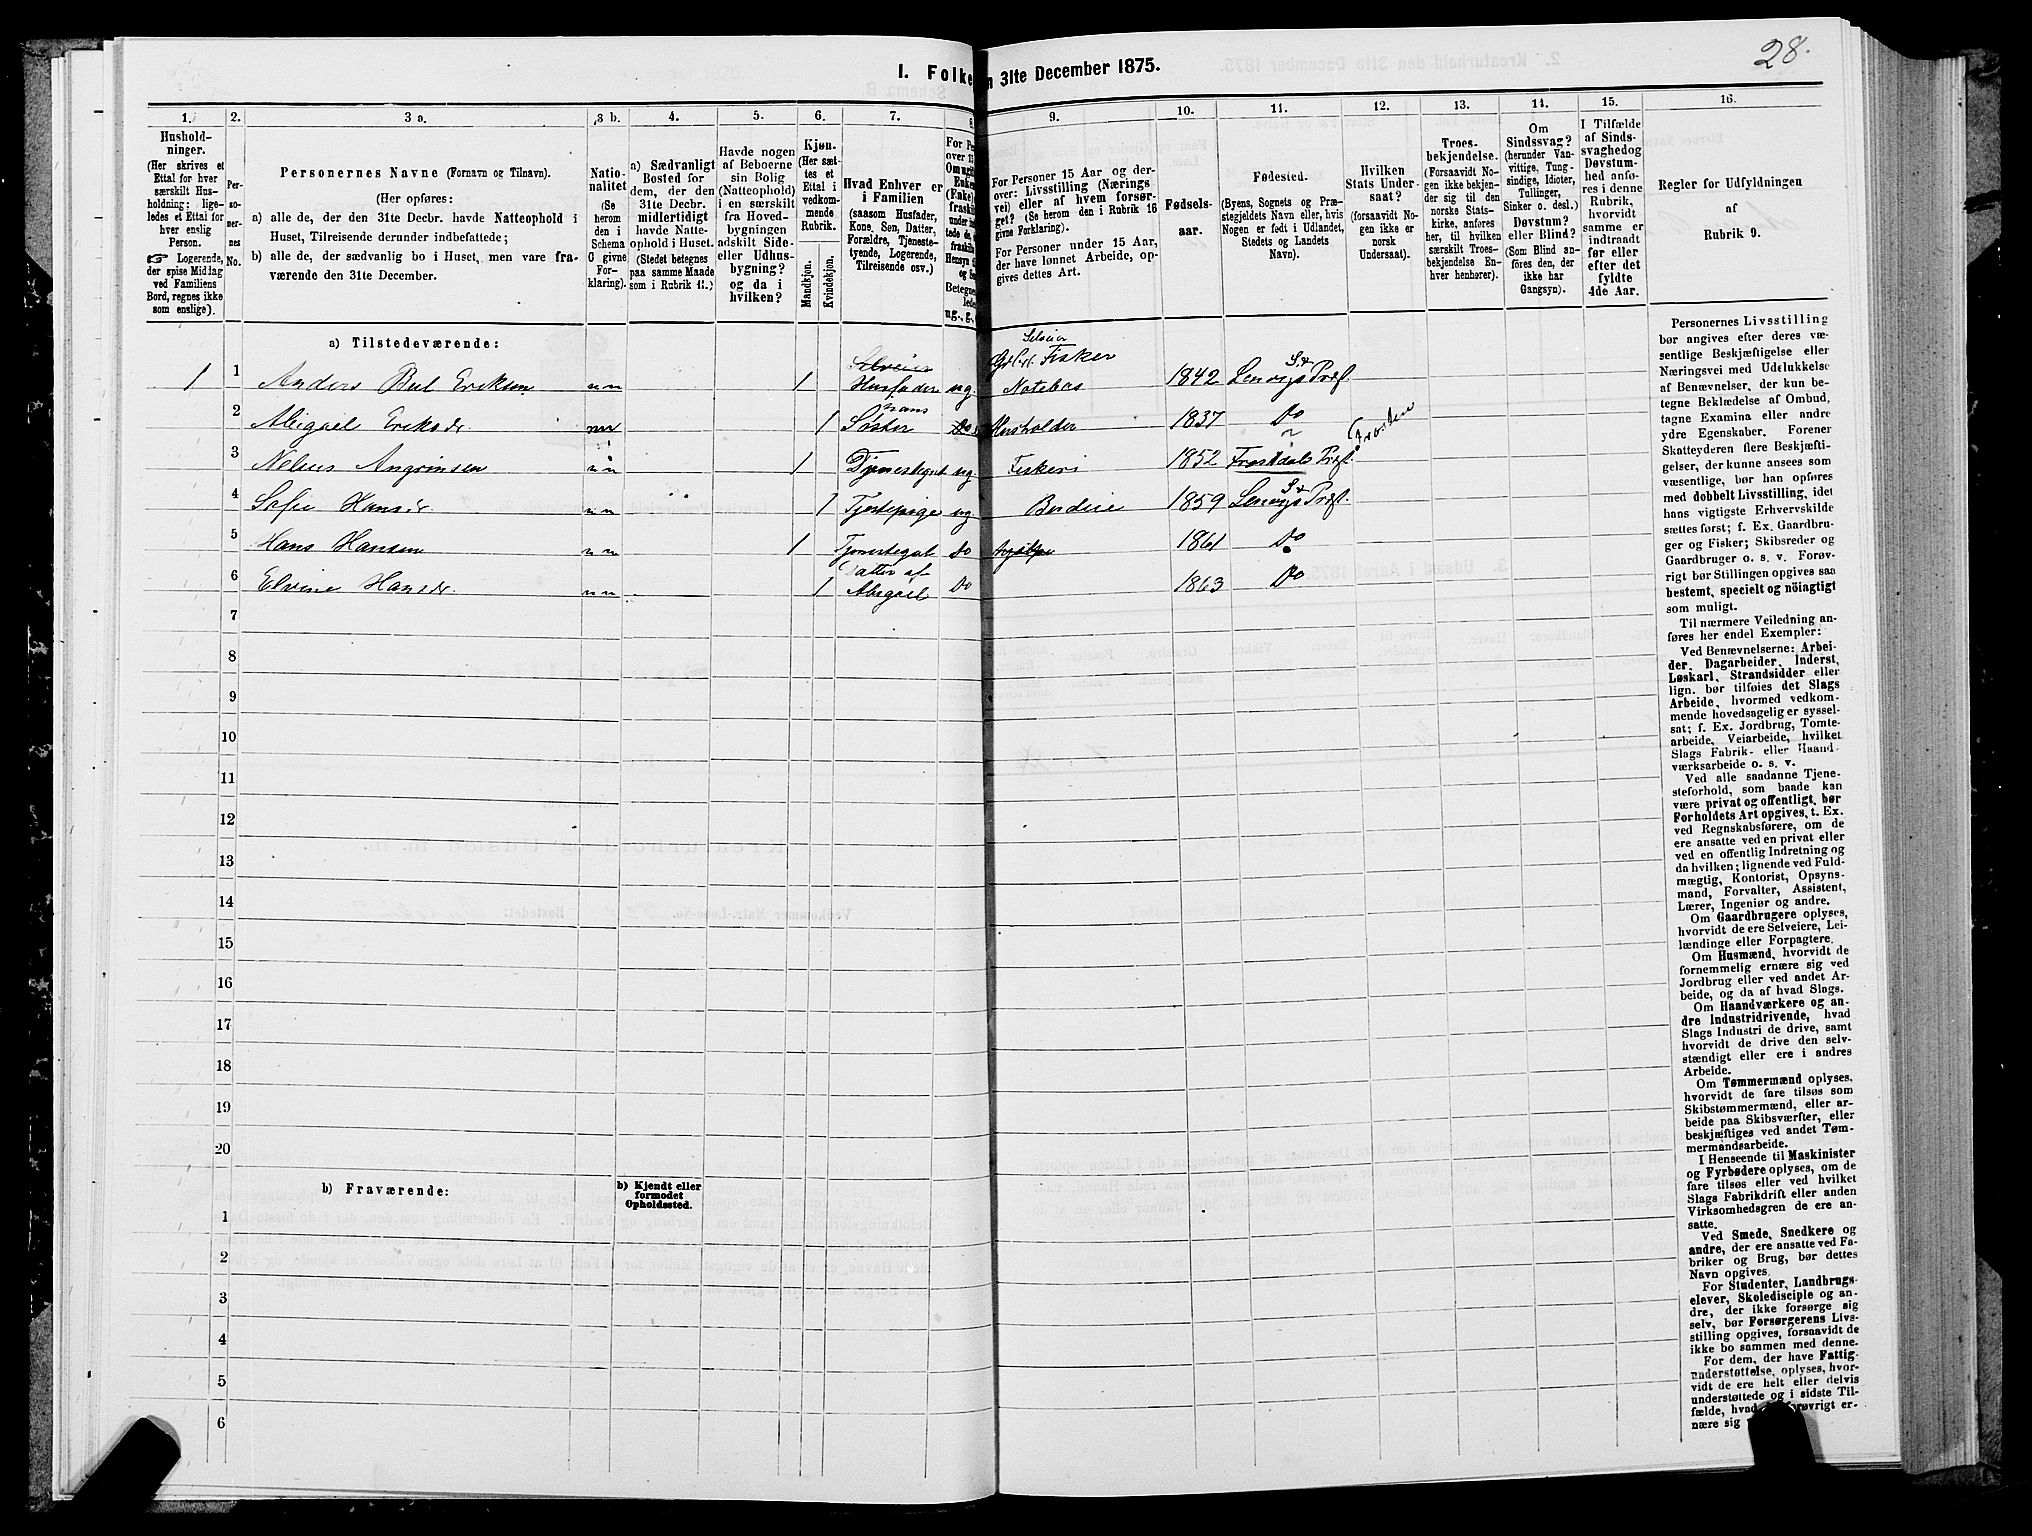 28.
I. Folke
n 31te December 1875.
1.
2.
3 a.
3 b.
4.
5.
6.
7.
8.
9.
10.
11.
12.
13.
14.
15.
16.
Hushold-
ninger.
(Her skrives et
Ettal for hver
særskilt Hus-
holdning; lige-
ledes et Ettal for
hver enslig
Person.
☞ Logerende,
der spise Middag
ved Familiens
Bord, regnes ikke
som enslige).
Per-
so-
ner-
nes
No.
Personernes Navne (Fornavn og Tilnavn).
(Her opføres:
a) alle de, der den 31te Decbr. havde Natteophold i
Huset, Tilreisende derunder indbefattede;
b) alle de, der sædvanlig bo i Huset, men vare fra-
værende den 31te December.
Natio-
nalitet
(Se
herom
den i
Schema
G givne
For-
klaring).
a) Sædvanligt
Bosted for
dem, der den
31te Decbr.
midlertidigt
havde Natte-
ophold i Huset.
(Stedet betegnes
paa samme Maade
som i Rubrik 11.)
Havde nogen
af Beboerne
sin Bolig
(Natteophold)
i en særskilt
fra Hoved-
bygningen
adskilt Side-
eller Udhus-
bygning?
og da i
hvilken?
Kjøn.
(Her sæt-
tes et
Ettal i
vedkom-
mende
Rubrik.
Mandkjøn.
Kvindekjøn.
Hvad Enhver er
i Familien
(saasom Husfader,
Kone, Søn, Datter,
Forældre, Tjeneste-
tyende, Logerende,
Tilreisende osv.)
For Personer 15 Aar og der-
over: Livsstilling (Nærings
vei) eller af hvem forsør-
get? (Se herom den i Rubrik 16
givne Forklaring).
For Personer under 15 Aar,
der have lønnet Arbeide, op-
gives dettes Art.
Fødsels-
aar.
Fødested.
(Byens, Sognets og Præ-
stegjeldets Navn eller, hvis
Nogen er født i Udlandet,
Stedets og Landets
Navn).
Hvilken
Stats Under-
saat?
(forsaavidt No-
gen ikke er
norsk
Undersaat).
Troes-
bekjendelse.
(Forsaavidt No-
gen ikke bekjen-
der sig til den
norske Stats-
kirke, anføres
her, til hvilken
særskilt Troes-
bekjendelse En-
hver henhører).
Om
Sindssvag?
(herunder Van-
vittige, Tung-
sindige, Idioter,
Tullinger,
Sinker o. desl.)
Døvstum?
eller Blind?
(Som Blind an-
føres den, der
ikke har
Gangsyn).
I Tilfælde
af Sinds-
svaghedog
Døvstum-
hed anfø-
res i denne
Rubrik,
hvorvidt
samme er
indtraadt
før eller
efter det
fyldte
4de Aar.
Regler for Udfyldningen
af
Rubrik 9.
a) Tilstedeværende:
1 1 Anders Bul Eriksen 1 Husfader ug. Selveier Fisker Notebas 1842 Lenvigs Præst.
2 Abigael Eriksdr 1 hans Søster Do Husholder 1837 Do
3 Nelius Angrimsen 1 Tjenestegut ug Fiskeri 1852 Præst.
4 Sofie Hansdr. 1 ug 1859 Lenvigs Præst.
5 Hans Hansen 1 Tjenestegut Do 1861 Do
6 Elvine Hansdr. 1 Datter af Abigael Do 1863 Do
7
8
9
10
11
12
13
14
15
16
17
18
19
20
b) Fraværende:
b) Kjendt eller
formodet
Opholdssted.
1
2
3
4
5
6
Personernes Livsstilling
bør angives efter deres væ-
sentlige Beskjæftigelse eller
Næringsvei med Udelukkelse
af Benævnelser, der kun be-
tegne Beklædelse af Ombud,
tagne Examina eller andre
ydre Egenskaber. Forener
Skatteyderen flere Beskjæfti-
gelser, der kunne ansees som
væsentlige, bør han opføres
med dobbelt Livsstilling, idet
hans vigtigste Erhvervskilde
sættes først; f. Ex. Gaardbru-
ger og Fisker; Skibsreder og
Gaardbruger o. s. v. Forøv-
rigt bør Stillingen opgives saa
bestemt, specielt og nøiagtigt
som muligt.
Til nærmere Veiledning an-
føres her endel Exempler:
Ved Benævnelserne: Arbei-
der, Dagarbeider, Inderst,
Løskarl, Strandsidder eller
lign. bør tilføies det Slags
Arbeide, hvormed vedkom-
mende hovedsagelig er syssel-
sat; f. Ex. Jordbrug, Tomte-
arbeide, Veiarbeide, hvilket
Slags Fabrik- eller Haand-
værksarbeide o. s. v.
Ved alle saadanne Tjene-
steforhold, som baade kan
være privat og offentligt, bør
Forholdets Art opgives, t. Ex.
ved Regnskabsførere, om de
ere ansatte ved en privat eller
ved en offentlig Indretning og
da hvilken; lignende ved Fuld-
mægtig, Kontorist, Opsyns-
mand, Forvalter, Assistent,
Lærer, Ingeniør og andre.
Om Gaardbrugere oplyses,
hvorvidt de ere Selveiere, Lei-
lændinge eller Forpagtere.
Om Husmænd, hvorvidt de
fornemmelig ernære sig ved
Jordbrug eller ved andet Ar-
beide, og da af hvad Slags.
Om Haandværkere og an-
dre Industridrivende, hvad
Slags Industri de drive, samt
hvorvidt de drive den selv-
stændigt eller ere i andres
Arbeide.
Om Tømmermænd oplyses,
hvorvidt de fare tilsøs som
Skibstømmermænd, eller ar-
beide paa Skibsværfter, eller
beskjæftiges ved andet Tøm-
mermandsarbeide.
I Henseende til Maskinister
og Fyrbødere oplyses, om de
fare tilsøs eller ved hvilket
Slags Fabrikdrift eller anden
Virksomhedsgren de ere an-
satte.
Ved Smede, Snedkere og
andre, der ere ansatte ved Fa-
briker og Brug, bør dettes
Navn opgives.
For Studenter, Landbrugs-
elever, Skoledisciple og an-
dre, der ikke forsørge sig
selv, bør Forsørgerens Livs-
stilling opgives, forsaavidt de
ikke bo sammen med denne.
For dem, der have Fattig-
understøttelse, oplyses, hvor-
vidt de ere helt eller delvis
understøttede og i sidste Til-
fælde, hvad forøvrigt er-
nære sig